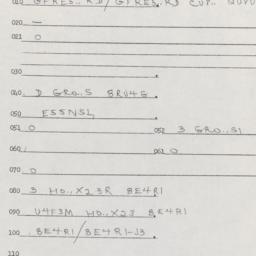 010 GFRES.. RD/GFRES. RD CUP..
020 —
021 0
030
040 D GRO..S BRU4S
050 ESSNSL
051 0 052 3 GRO..S1
060 061 0
070 0
080 3 HO..X23R BE4R1
090 U4F3M HO..X23 BE4R1
100 . BE4R1/BE4R1-J3
110